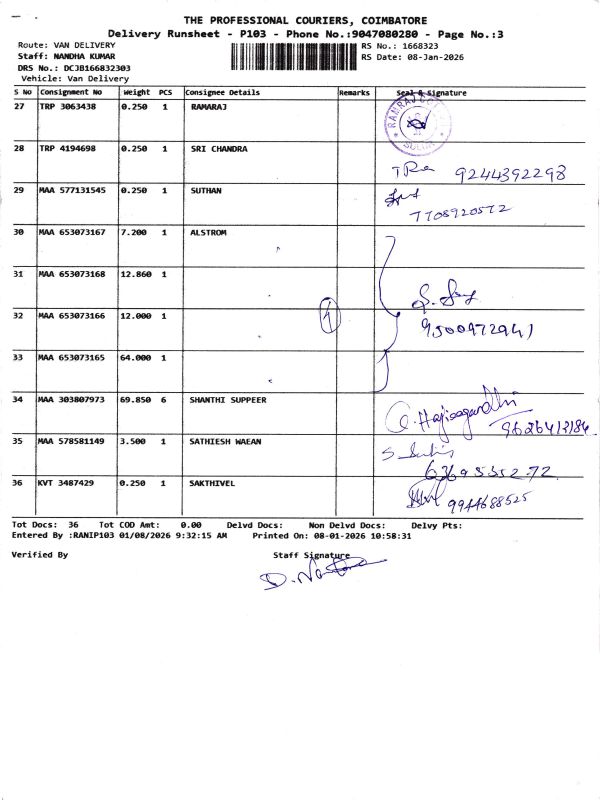 THE PROFESSIONAL COURIERS, COIMBATORE
Delivery Runsheet - P103 - Phone No.:9047080280 - Page No.:3
Route: VAN DELIVERY RS No.: 1668323
Staff: NANDHA KUMAR RS Date: 08-Jan-2026
DRS No.: DCJB166832303
Vehicle: Van Delivery
S No Consignment No Weight PCS Consignee Details Remarks Seal & Signature
27 TRP 3063438 0.250 1 RAMARAJ
28 TRP 4194698 0.250 1 SRI CHANDRA
9244392298
29 MAA 577131545 0.250 1 SUTHAN
7708920572
30 MAA 653073167 7.200 1 ALSTROM
31 MAA 653073168 12.860 1
32 MAA 653073166 12.000 1 4
9500972941
33 MAA 653073165 64.000 1
34 MAA 303807973 69.850 6 SHANTHI SUPPEER
9626412184
35 MAA 578581149 3.500 1 SATHIESH WAEAN
6369535272
36 KVT 3487429 0.250 1 SAKTHIVEL
9944688525
Tot Docs: 36 Tot COD Amt: 0.00 Delvd Docs: Non Delvd Docs: Delvy Pts:
Entered By :RANIP103 01/08/2026 9:32:15 AM Printed On: 08-01-2026 10:58:31
Verified By Staff Signature